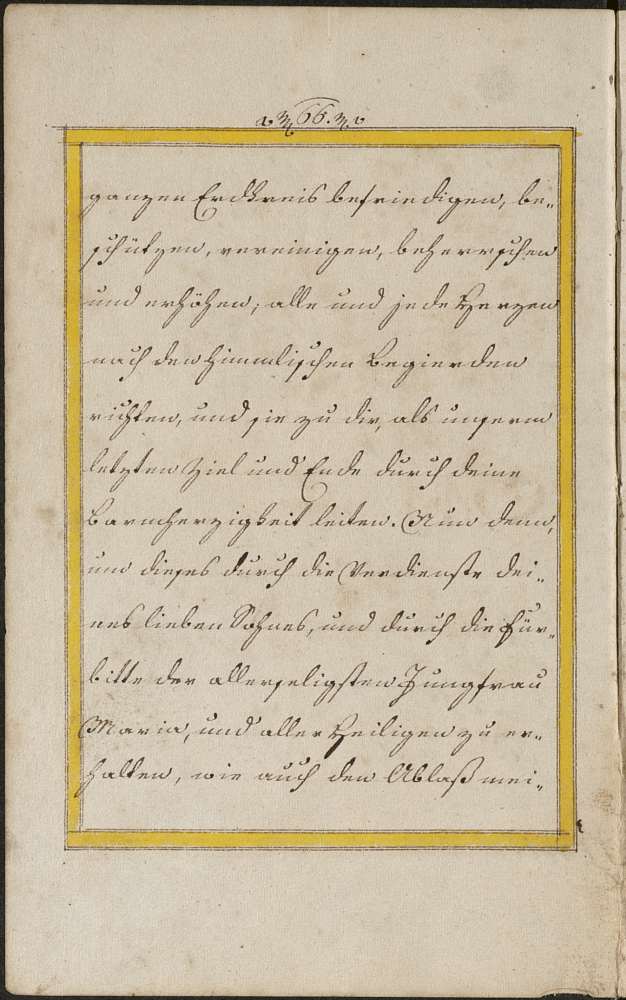 66.
ganzen Erdkreis befriedigen, be„
schützen, vereinigen, beherrschen
und erhöhen; alle und jede Herzen
nach den himmlischen Begierden
richten, und sie zu dir, als unserm
letzten Ziel und Ende durch deine
Barmherzigkeit leiten. Nun denn,
um dieses durch die Verdienste dei„
nes lieben Sohnes, und durch die Für„
bitte der allerseligsten Jungfrau
Maria, und aller Heiligen zu er„
halten, wie auch den Ablaß mei„